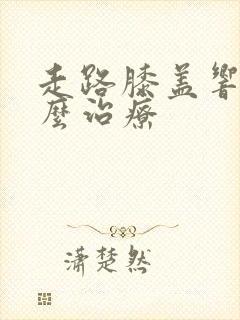 走路膝盖响
麼治療
潇楚然